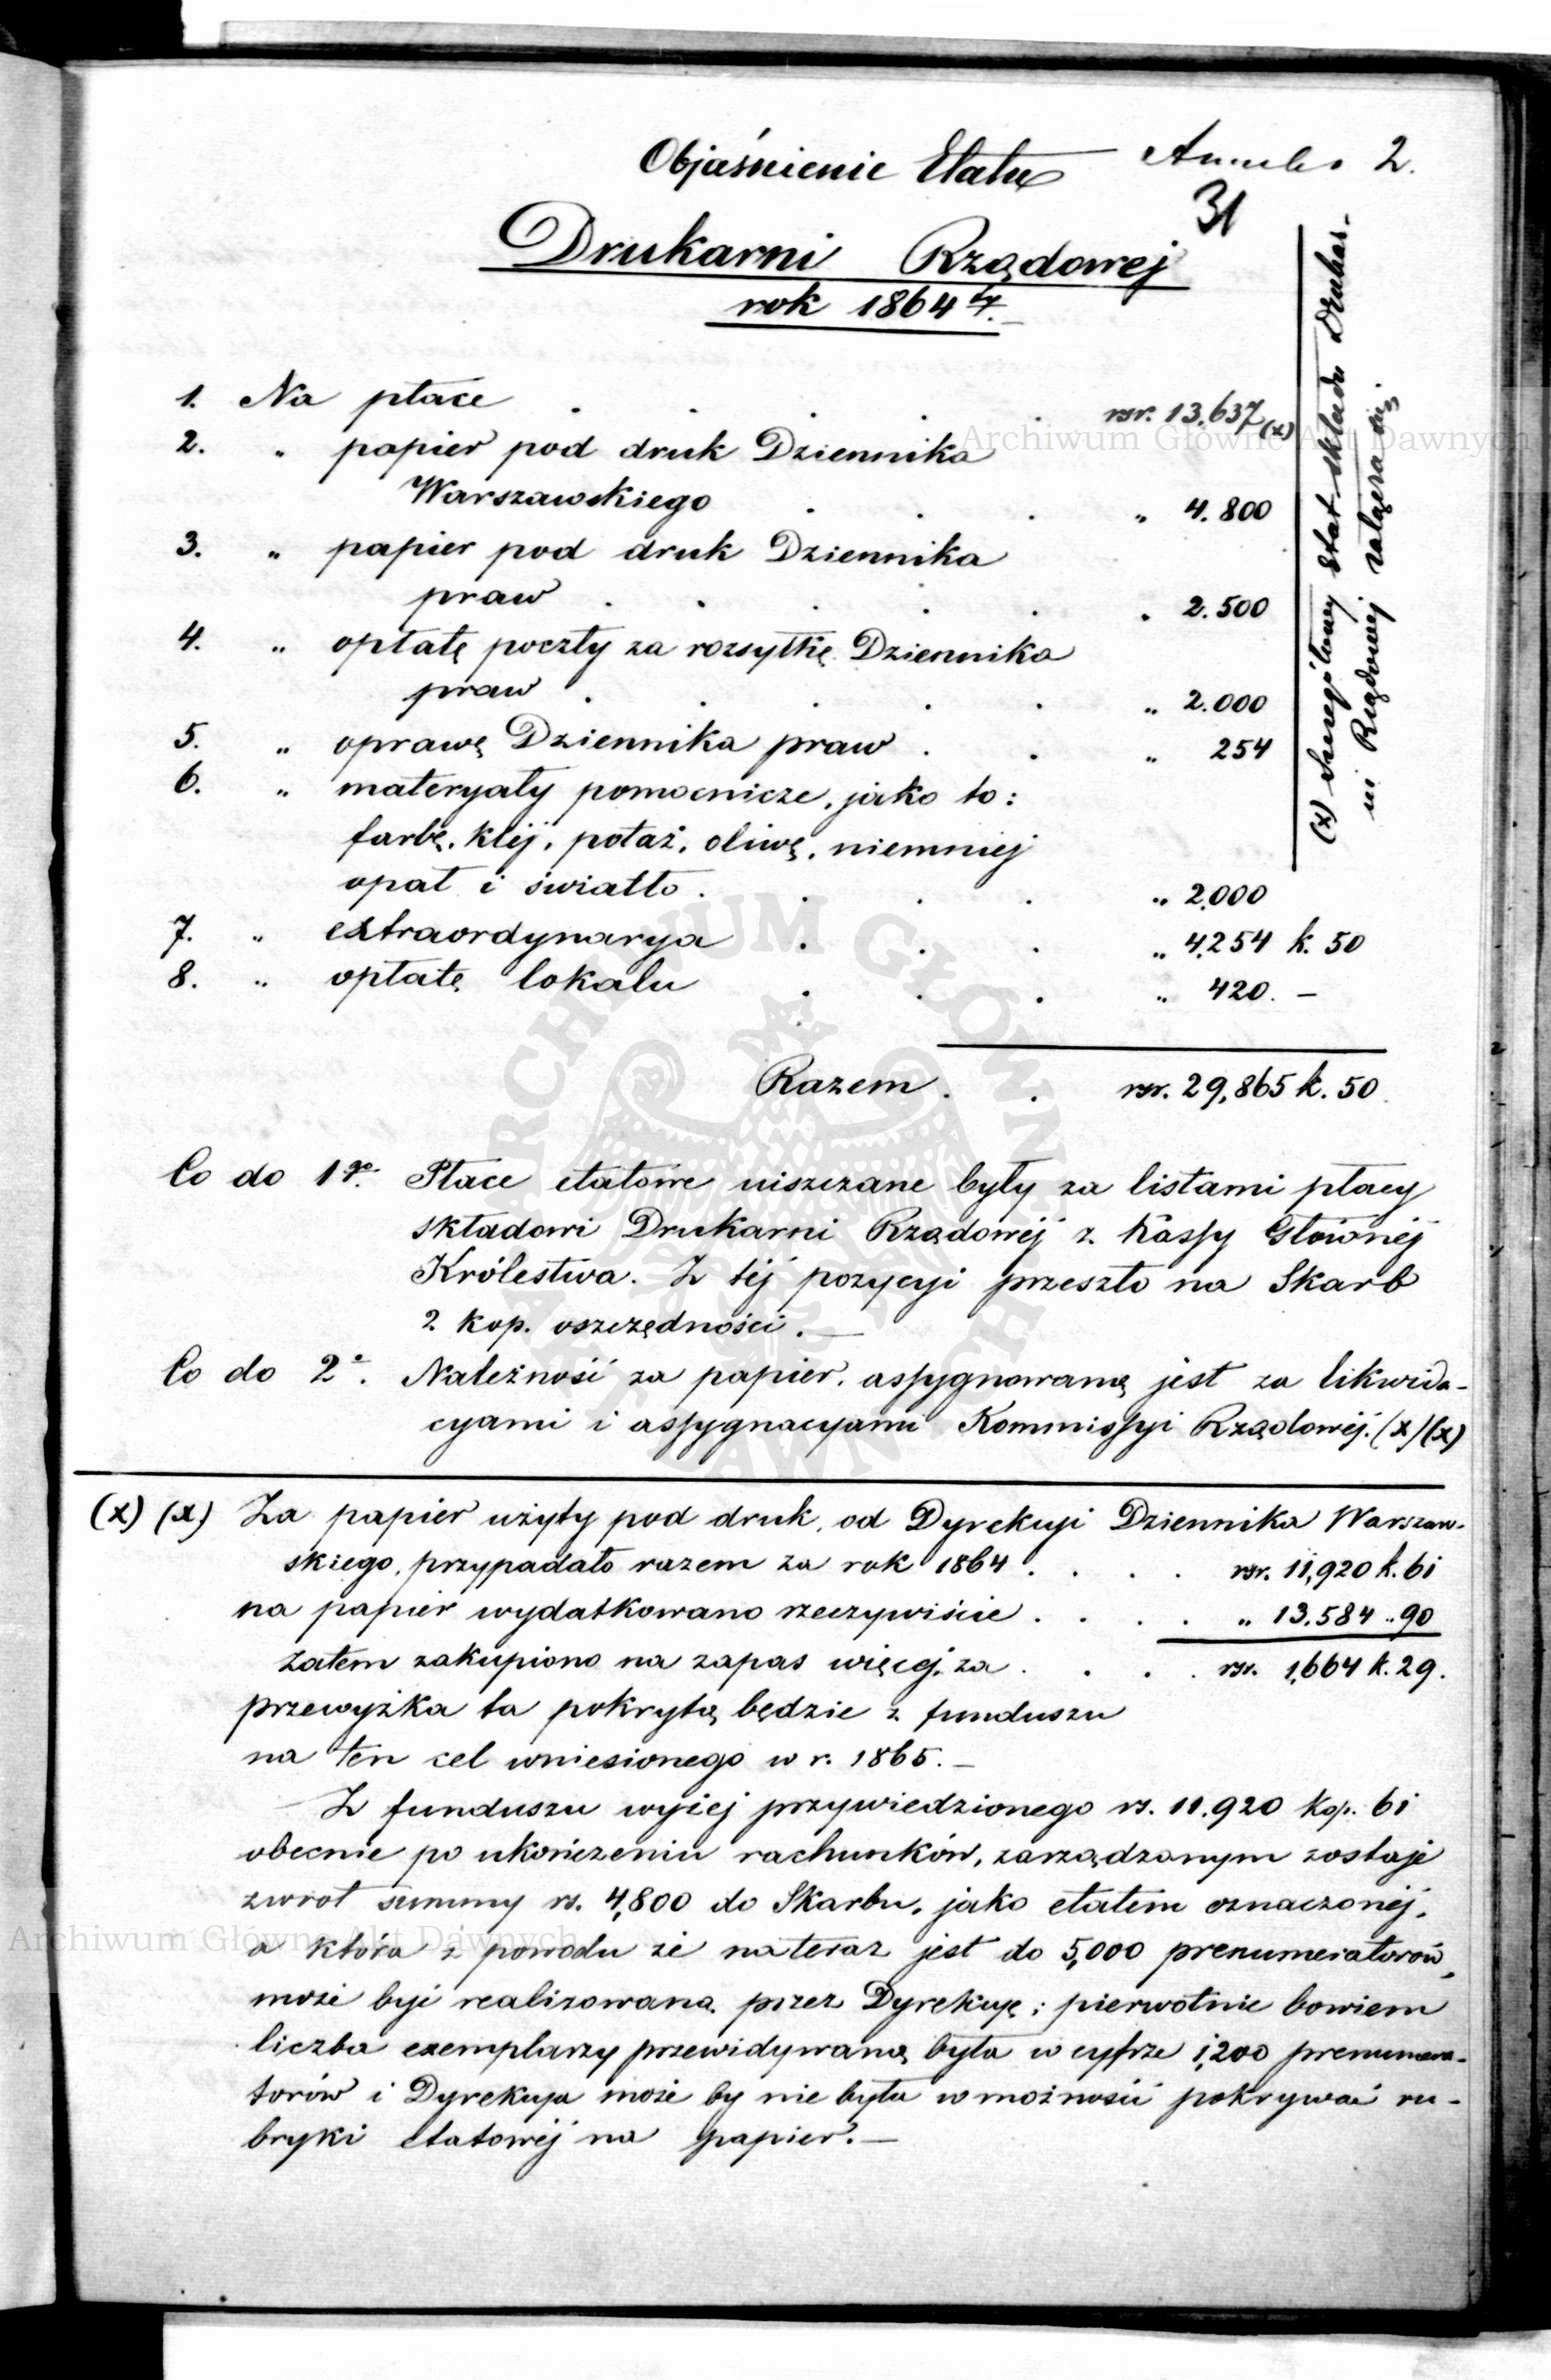 Objaśnienie Etatu
Anneks 2.
31
Drukarni Rządowej
rok 1864 ty.
1. Na płace . . . . . rsr. 13,637 (x)
2. " papier pod druk Dziennika
Warszawskiego . . . " 4.800
3. " papier pod druk Dziennika
praw . . . . . " 2.500
4. " opłatę poczty za rozsyłkę Dziennika
praw . . . . . " 2.000
5. " oprawę Dziennika praw . . " 254
6. " materyały pomocnicze, jako to:
farbę, klej, potaż, oliwę, niemniej
opał i światło . . . . " 2,000
7. " extraordynarya . . . " 4,254 k. 50
8. " opłatę lokalu . . . " 420. –
Razem . . rsr. 29,865 k. 50
(x) szczegółowy etat składu Drukar-
ni Rządowej załącza się.
Co do 1go. Płace etatowe uiszczane były za listami płacy
składowi Drukarni Rządowéj z Kassy Głównéj
Królestwa. Z téj pozycyi przeszło na Skarb
2 kop. oszczędności. —
Co do 2o. Należność za papier, assygnowaną jest za likwida-
cyami i assygnacyami Kommissyi Rządowéj. (x)(x)
(x) (x) Za papier użyty pod druk, od Dyrekcyi Dziennika Warszaw-
skiego, przypadało razem za rok 1864 . . . . rsr. 11,920 k. 61
na papier wydatkowano rzeczywiście . . . " 13.584 " 90
zatem zakupiono na zapas więcej za . . . . rsr. 1,664 k. 29.
przewyżka ta pokrytą będzie z funduszu
na ten cel wniesionego w r. 1865. —
Z funduszu wyżej przywiedzionego rs. 11.920 kop. 61
obecnie po ukończeniu rachunków, zarządzanym zostaje
zwrot summy rs. 4,800 do Skarbu, jako etatem oznaczonéj,
a która z powodu że na teraz jest do 5,000 prenumeratorów,
może być realizowana przez Dyrekcyę; pierwotnie bowiem
liczba exemplarzy przewidywaną była w cyfrze 1,200 prenumera-
torów i Dyrekcya może by nie była w możności pokrywać ru-
bryki etatowéj na papier. —
Archiwum Główne Akt Dawnych
Archiwum Główne Akt Dawnych